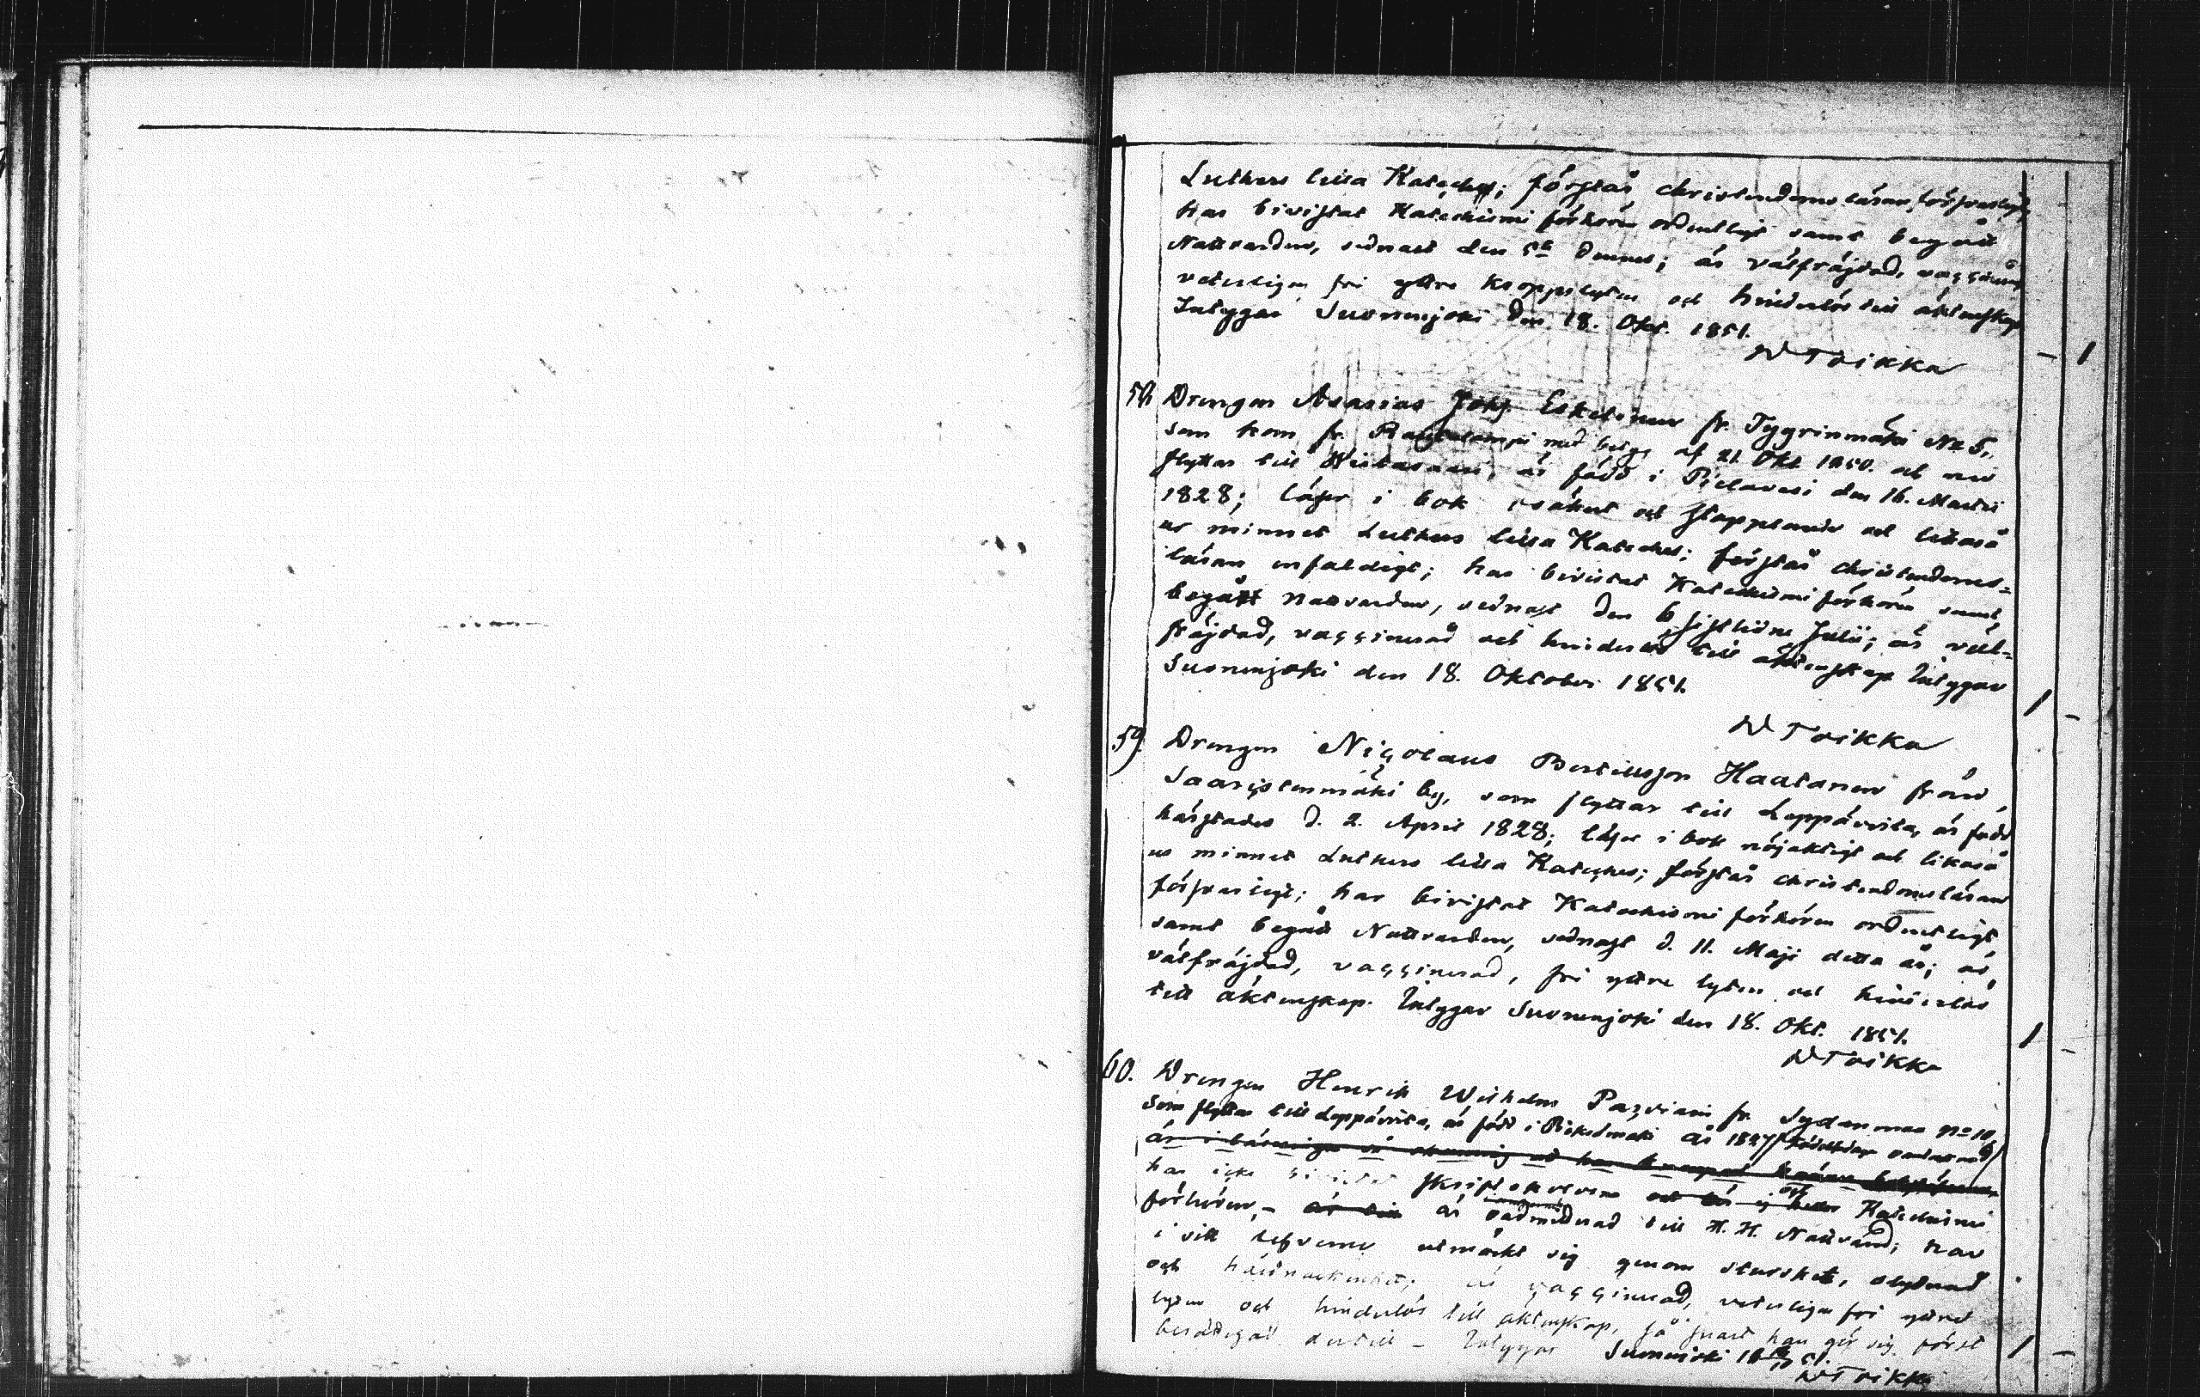 Luthers lilla Kateches; förstår christendomsläran försvarligt,
har bivistat Katechismi förhören ordentligt samt begått
Nattvarden, sednast den 5te dennes; är välfräjdad, vaccinerad,
veterligen fri yttre kroppslyten och hinderlös till äktenskap
Intygar Suonenjoki den 18. Okt. 1851.
N Toikka
– 1
58 Drengen Asarias Johs. Eskelinen fr. Tyyrinmäki No 5,
som kom fr. Rautalampi med betyg af 21 Okt 1850. och nu
flyttar till Wiitasaari, är född i Pielavesi den 16. Martii
1828; läser i bok osäkert och stapplande och likaså
ur minnet Luthers lilla Kateches; förstår christendoms-
läran enfaldigt; har bivistat Katechismi förhören samt
begått nattvarden, sednast den 6 sistlidne Julii; är väl-
fräjdad, vaccinerad och hinderlös till äktenskap Intygar
Suonenjoki den 18. Oktober 1851.
N Toikka
1 –
59) Drengen Nicolaus Bertilsson Haatanen från
Saarystenmäki by, som flyttar till Leppävirta, är född
härstädes d. 2. April 1828; läser i bok nöjaktigt och likaså
ur minnet Luthers lilla Kateches; förstår christendomsläran
försvarligt; har bivistat Katechismi förhören ordentligt,
samt begått Nattvarden, sednast d. 11. Maji detta år; är
välfräjdad, vaccinerad, fri yttre lyten och hinderlös
till äktenskap. Intygar Suonenjoki den 18. Okt. 1851.
N Toikka
1 –
60. Drengen Henrik Wilhelm Pasviain fr. Sydanmaa No 10,
som flyttar till Leppävirta, är född i Pieksämäki år 1827
är i så att han knapt känner
har icke bivistat skriftskolorna och Katechismi
förhören, – är oadmitterad till H. H. Nattvard; har
i sitt lefverne utmärkt sig genom sturskhet, olydnad
och hårdnackenhet; är vaccinerad, veterligen fri yttre
lyten och hinderlös till äktenskap, så snart han gör sig först
berättigad dertill – Intygar Suonenjoki 18 51.
N Toikka
1 –